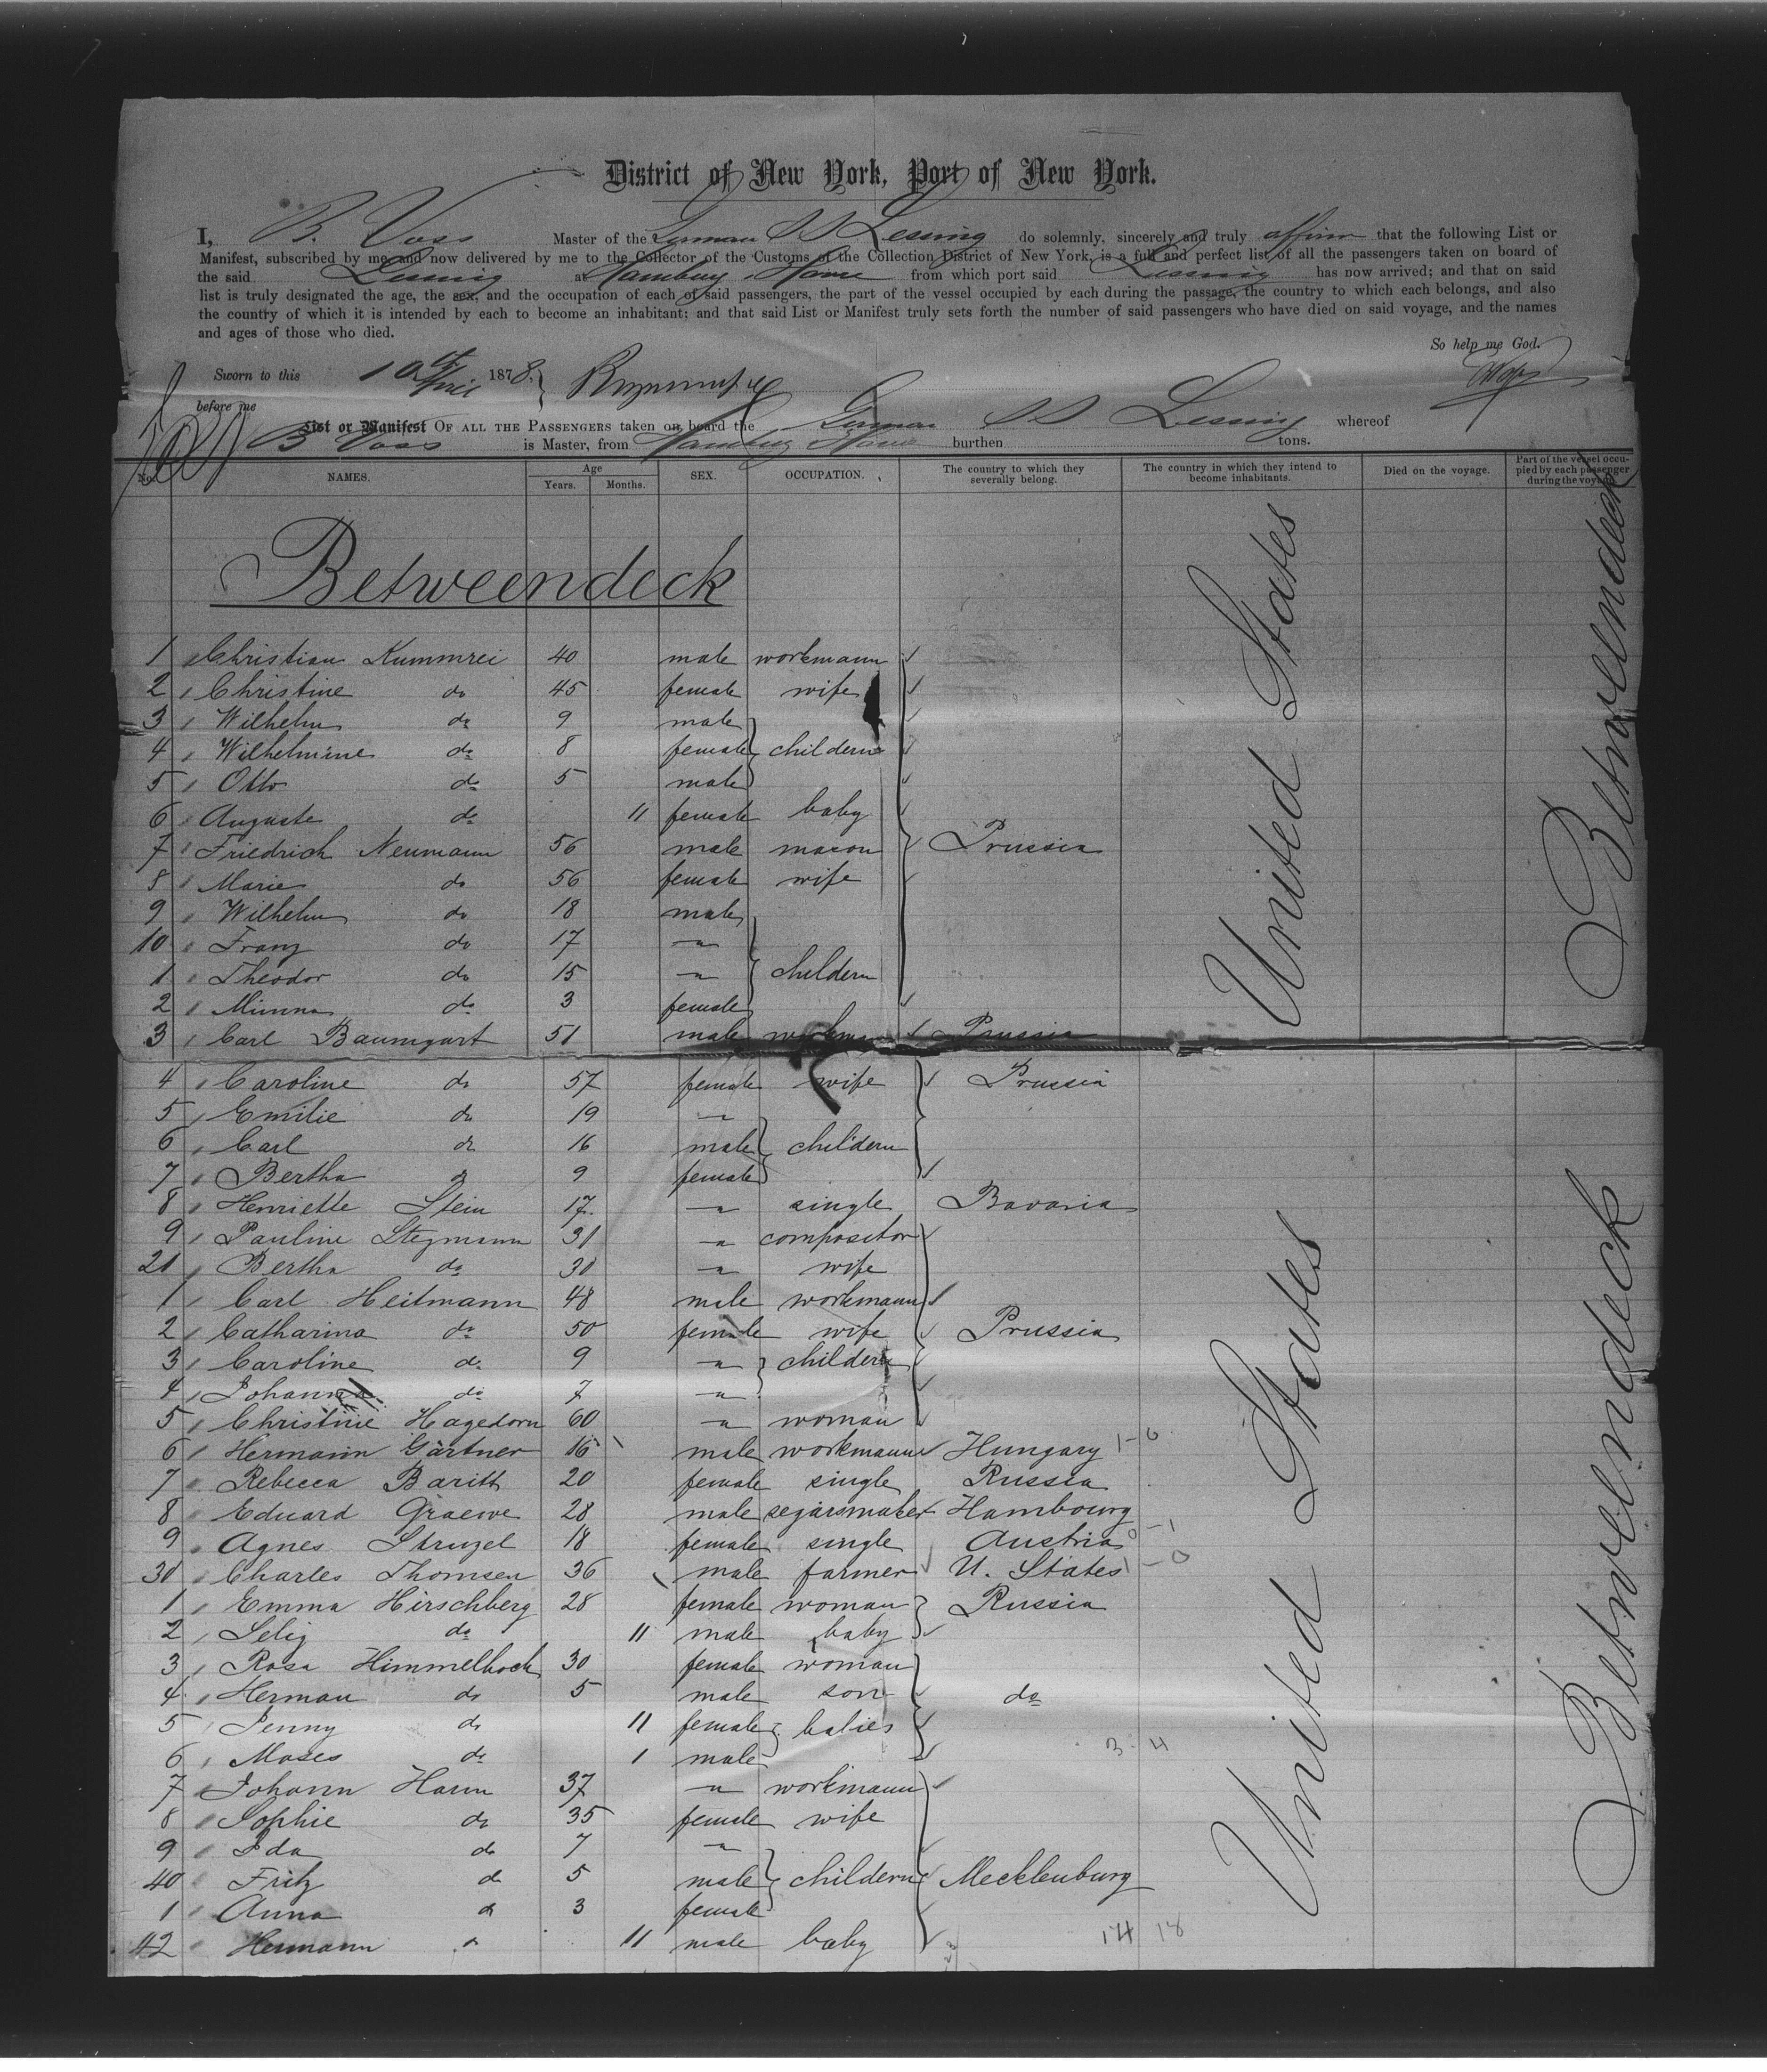 District of New York, Port of New York.
I, B. Voss Master of the German SS Lessing do solemnly, sincerely and truly affirm that the following List or
Manifest, subscribed by me, and now delivered by me to the Collector of the Customs of the Collection District of New York, is a full and perfect list of all the passengers taken on board of
the said Lessing at Hamburg, Havre from which port said Lessing has now arrived; and that on said
list is truly designated the age, the sex, and the occupation of each of said passengers, the part of the vessel occupied by each during the passage, the country to which each belongs, and also
the country of which it is intended by each to become an inhabitant; and that said List or Manifest truly sets forth the number of said passengers who have died on said voyage, and the names
and ages of those who died.
So help me God.
Sworn to this 10th April 1878.
before me
List or Manifest OF ALL THE PASSENGERS taken on board the German SS Lessing whereof
B Voss is Master, from Hamburg Havre burthen tons.
No. NAMES. Age Years. Months. SEX. OCCUPATION. The country to which they severally belong. The country in which they intend to become inhabitants. Died on the voyage. Part of the vessel occupied by each passenger during the voyage
Betweendeck
United States
Betweendeck
1 Christian Kummrei 40 male workmann
2 Christine do 45 female wife
3 Wilhelm do 9 male
4 Wilhelmine do 8 female childern
5 Otto do 5 male
6 Auguste do 11 female baby
7 Friedrich Neumann 56 male mason Prussia
8 Marie do 56 female wife
9 Wilhelm do 18 male
10 Franz do 17 "
1 Theodor do 15 " childern
2 Minna do 3 female
3 Carl Baumgart 51 male workman Prussia
4 Caroline do 57 female wife Prussia
5 Emilie do 19 "
6 Carl do 16 male childern
7 Bertha do 9 female
8 Henriette Stein 17 " single Bavaria
9 Pauline Stegmann 31 " compositor
20 Bertha do 30 " wife
1 Carl Heitmann 48 male workmann
2 Catharina do 50 female wife Prussia
3 Caroline do 9 " childern
4 Johanna do 7 "
5 Christine Hagedorn 60 " woman
6 Hermann Gärtner 16 male workmann Hungary 1-0
7 Rebecca Baritt 20 female single Russia
8 Eduard Graewe 28 male segarsmaker Hambourg
9 Agnes Struzel 18 female single Austria 0-1
30 Charles Thomsen 36 male farmer U. States 1-0
1 Emma Hirschberg 28 female woman Russia
2 Selig do 11 male baby
3 Rosa Himmelhoch 30 female woman
4 Herman do 5 male son do
5 Jenny do 11 female babies
6 Moses do 1 male 3-4
7 Johann Harm 37 " workmann
8 Sophie do 35 female wife
9 Ida do 7 "
40 Fritz do 5 male childern Mecklenburg
1 Anna do 3 female
42 Hermann " 11 male baby 14 18
United States
Betweendeck